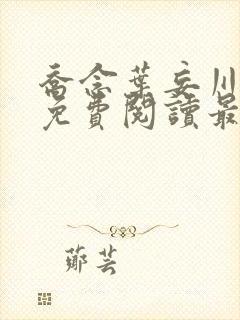 喬念葉妄川
免費閱讀最
鄭芸